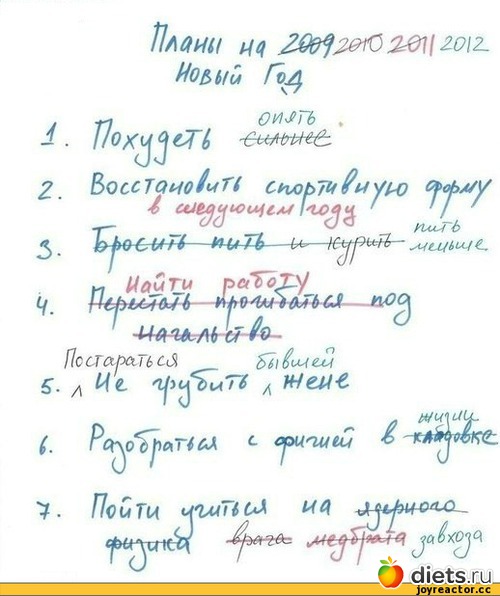 Планы на 2009 2010 2011 2012
Новый Год
опять
1. Похудеть сильнее
2. Восстановить спортивную форму
в следующем году
пить
3. Бросить пить и курить меньше
Найти работу
4. Перестать прогибаться под
начальство
Постараться бывшей
5. Не грубить жене
жизни
6. Разобраться с фигнёй в кладовке
7. Пойти учиться на ядерного
физика врача медбрата завхоза
diets.ru
joyreactor.cc